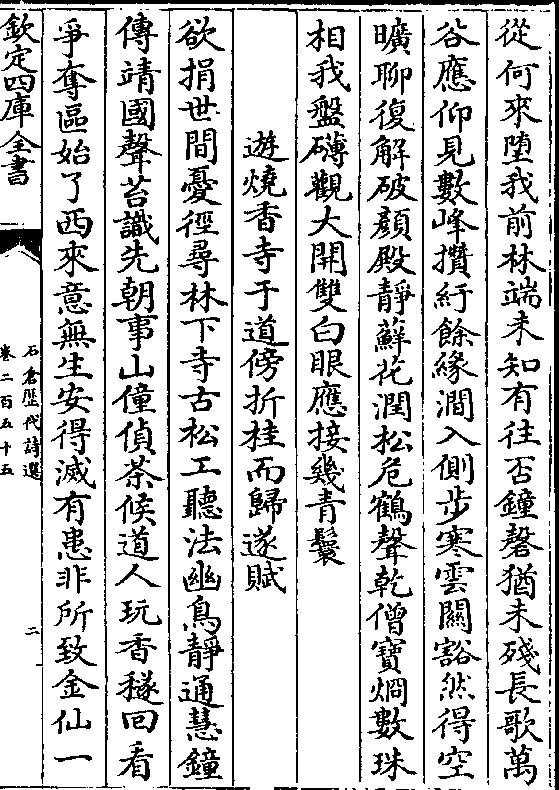 從何來墮我前林端未知有往否鐘磬猶未殘長歌萬
谷應仰見數峰攢紆餘緣澗入側步寒雲關豁然得空
曠聊復解破顔殿靜蘚花潤松危鶴聲乾僧寶烱數珠
相我盤礴觀大開雙白眼應接幾青鬟
遊燒香寺于道傍折桂而歸遂賦
欲捐世間憂徑尋林下寺古松工聽法幽鳥靜通慧鐘
傳靖國聲苔識先朝事山僮偵茶候道人玩香穟回看
爭奪區始了西來意無生安得滅有患非所致金仙一
欽定四庫全書
石倉歷代詩選
卷二百五十五
二